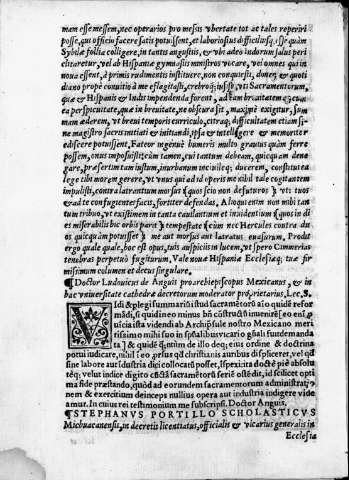 mam esse messem, nec operarios pro messis vbertate tot ac tales reperiri
posse, qui officiū facere satis potuissent, et laboriosius difficilius q̃, isse quàm
Sybillæ folia colligere, in tantis augustijs, & vbi adeo Indorum salus peri
clitaretur, vel ab Hispaniæ gymnasijs ministros vocare, vel omnes qui in
noua essent, à primis rudimentis instituere, non conquiesti, donec & quoti
diano propè conuitio à me efflagitasti, crebroq; iussisti vti Sacramentorum,
quæ & Hispanis & Indis impendenda forent, adeam breuitatem
ca perspicuitate, quæ in breuitate, ne obscura sit, maximè exigitur, sum
mam æderem, vt breui temporis curriculo, citraq; difficultatem etiam si-
ne magistro sacris initiati & initiandi, ipsa & intelligere & memoriter
ediscere potuissent, Fateor ingenuè humeris multo grauius quàm ferre
possem, onus imposuisti: tamen, cui tantum debeam, quicquam dene
gare, præsertim tam iustum, inurbanum inciuileq; ducerem, constitui ea
lege tibi morem gerere, vt vnus qui ad id operis me nihil tale cogitantem
impulisti, contra latrantium morsus (quos scio non defuturos) vti tuos
ad te confugientes facis, fortiter defendas. Aloquenim non mihi tan
tum tribuo, vt existimem in tanta cauillantium et inuidentium (quos in di
es miserabilis hic orbis parit) tempestate nec Hercules contra du
os quicquàm potuisset me aut morsus aut latratus euasurum, Prodit
ergo quale quale, hoc est opus, tuis auspicijs in lucem, vt spero Cimmerias
tenebras perpetuò fugiturum, Vale nouæ Hispaniæ Ecclesiæq; tuæ fir
missimum columen et decus singulare.
¶ Doctor Ludouicus de Anguis pro archiepiscopus Mexicanus, & in
hac vniuersitate cathedræ decretorum moderator proprietarius, Lec. S.
VIdi & plegi summariū istud sacramētorū a ꝗo quidē refor
mādi, si quid in eo minus bñ cōstructū inuenirē
officia ista vidēndi ab Archipsule nostro Mexicano meri
tissimo mihi suo in spūalibus vicario gñali fuit demanda
ta & quidē quātum de illo deq; eius ordine & doctrina
potui iudicare, nihil eo prsus qđ christianis auribus displiceret, vel qđ
sine labore aut industria digi collocatū posset, inspexi: ita doctè piè absolu
teq; velut indice digito cūcta sacramētorū seriē ostēdit, id scilicet opti
ma fide præstando, quòd ad eorundem sacramentorum administrationem
& exercitium deinceps nullius opera aut industria indigere vide
amur. In cuius rei testimonium me subscripsi. Doctor Anguis.
¶ STEPHANVS PORTILLO SCHOLASTICVS
Michuacanensis, in decretis licentiatus, officialis & vicarius generalis in
Ecclesia